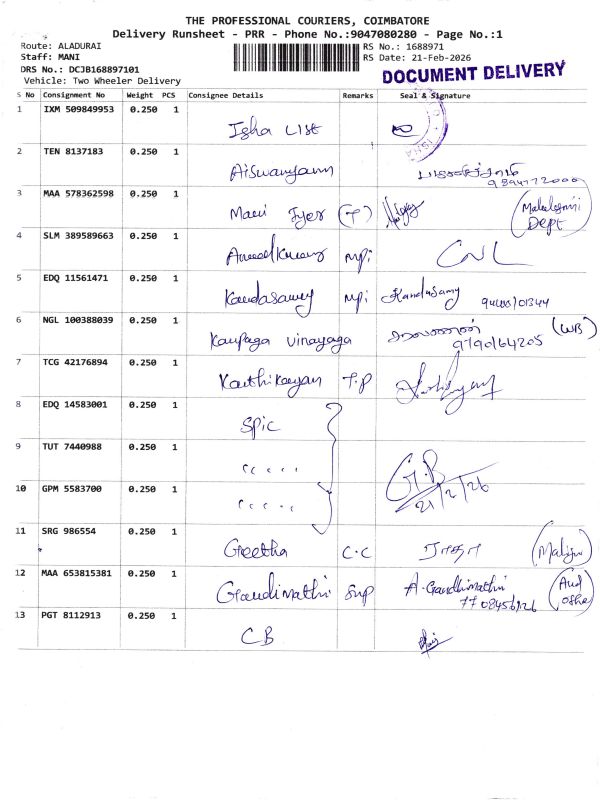 THE PROFESSIONAL COURIERS, COIMBATORE
Delivery Runsheet - PRR - Phone No.:9047080280 - Page No.:1
Route: ALADURAI
RS No.: 1688971
Staff: MANI
RS Date: 21-Feb-2026
DRS No.: DCJB168897101
Vehicle: Two Wheeler Delivery
DOCUMENT DELIVERY
S No Consignment No Weight PCS Consignee Details Remarks Seal & Signature
1 IXM 509849953 0.250 1
Isha LIST
ISHA
2 TEN 8137183 0.250 1
3 MAA 578362598 0.250 1
Mani Iyer (T)
Dept
4 SLM 389589663 0.250 1
Anandkumar mpi
5 EDQ 11561471 0.250 1
Kandasamy mpi Kandasamy
6 NGL 100388039 0.250 1
Kaupaga vinayaga (WB)
9790164205
7 TCG 42176894 0.250 1
Karthikeyan T.P
8 EDQ 14583001 0.250 1
SPIC
9 TUT 7440988 0.250 1
G.B
10 GPM 5583700 0.250 1
21/2/26
11 SRG 986554 0.250 1
Geetha C.C ராதா
12 MAA 653815381 0.250 1
Gandimathi Sup A. Gandhimathi
13 PGT 8112913 0.250 1
CB